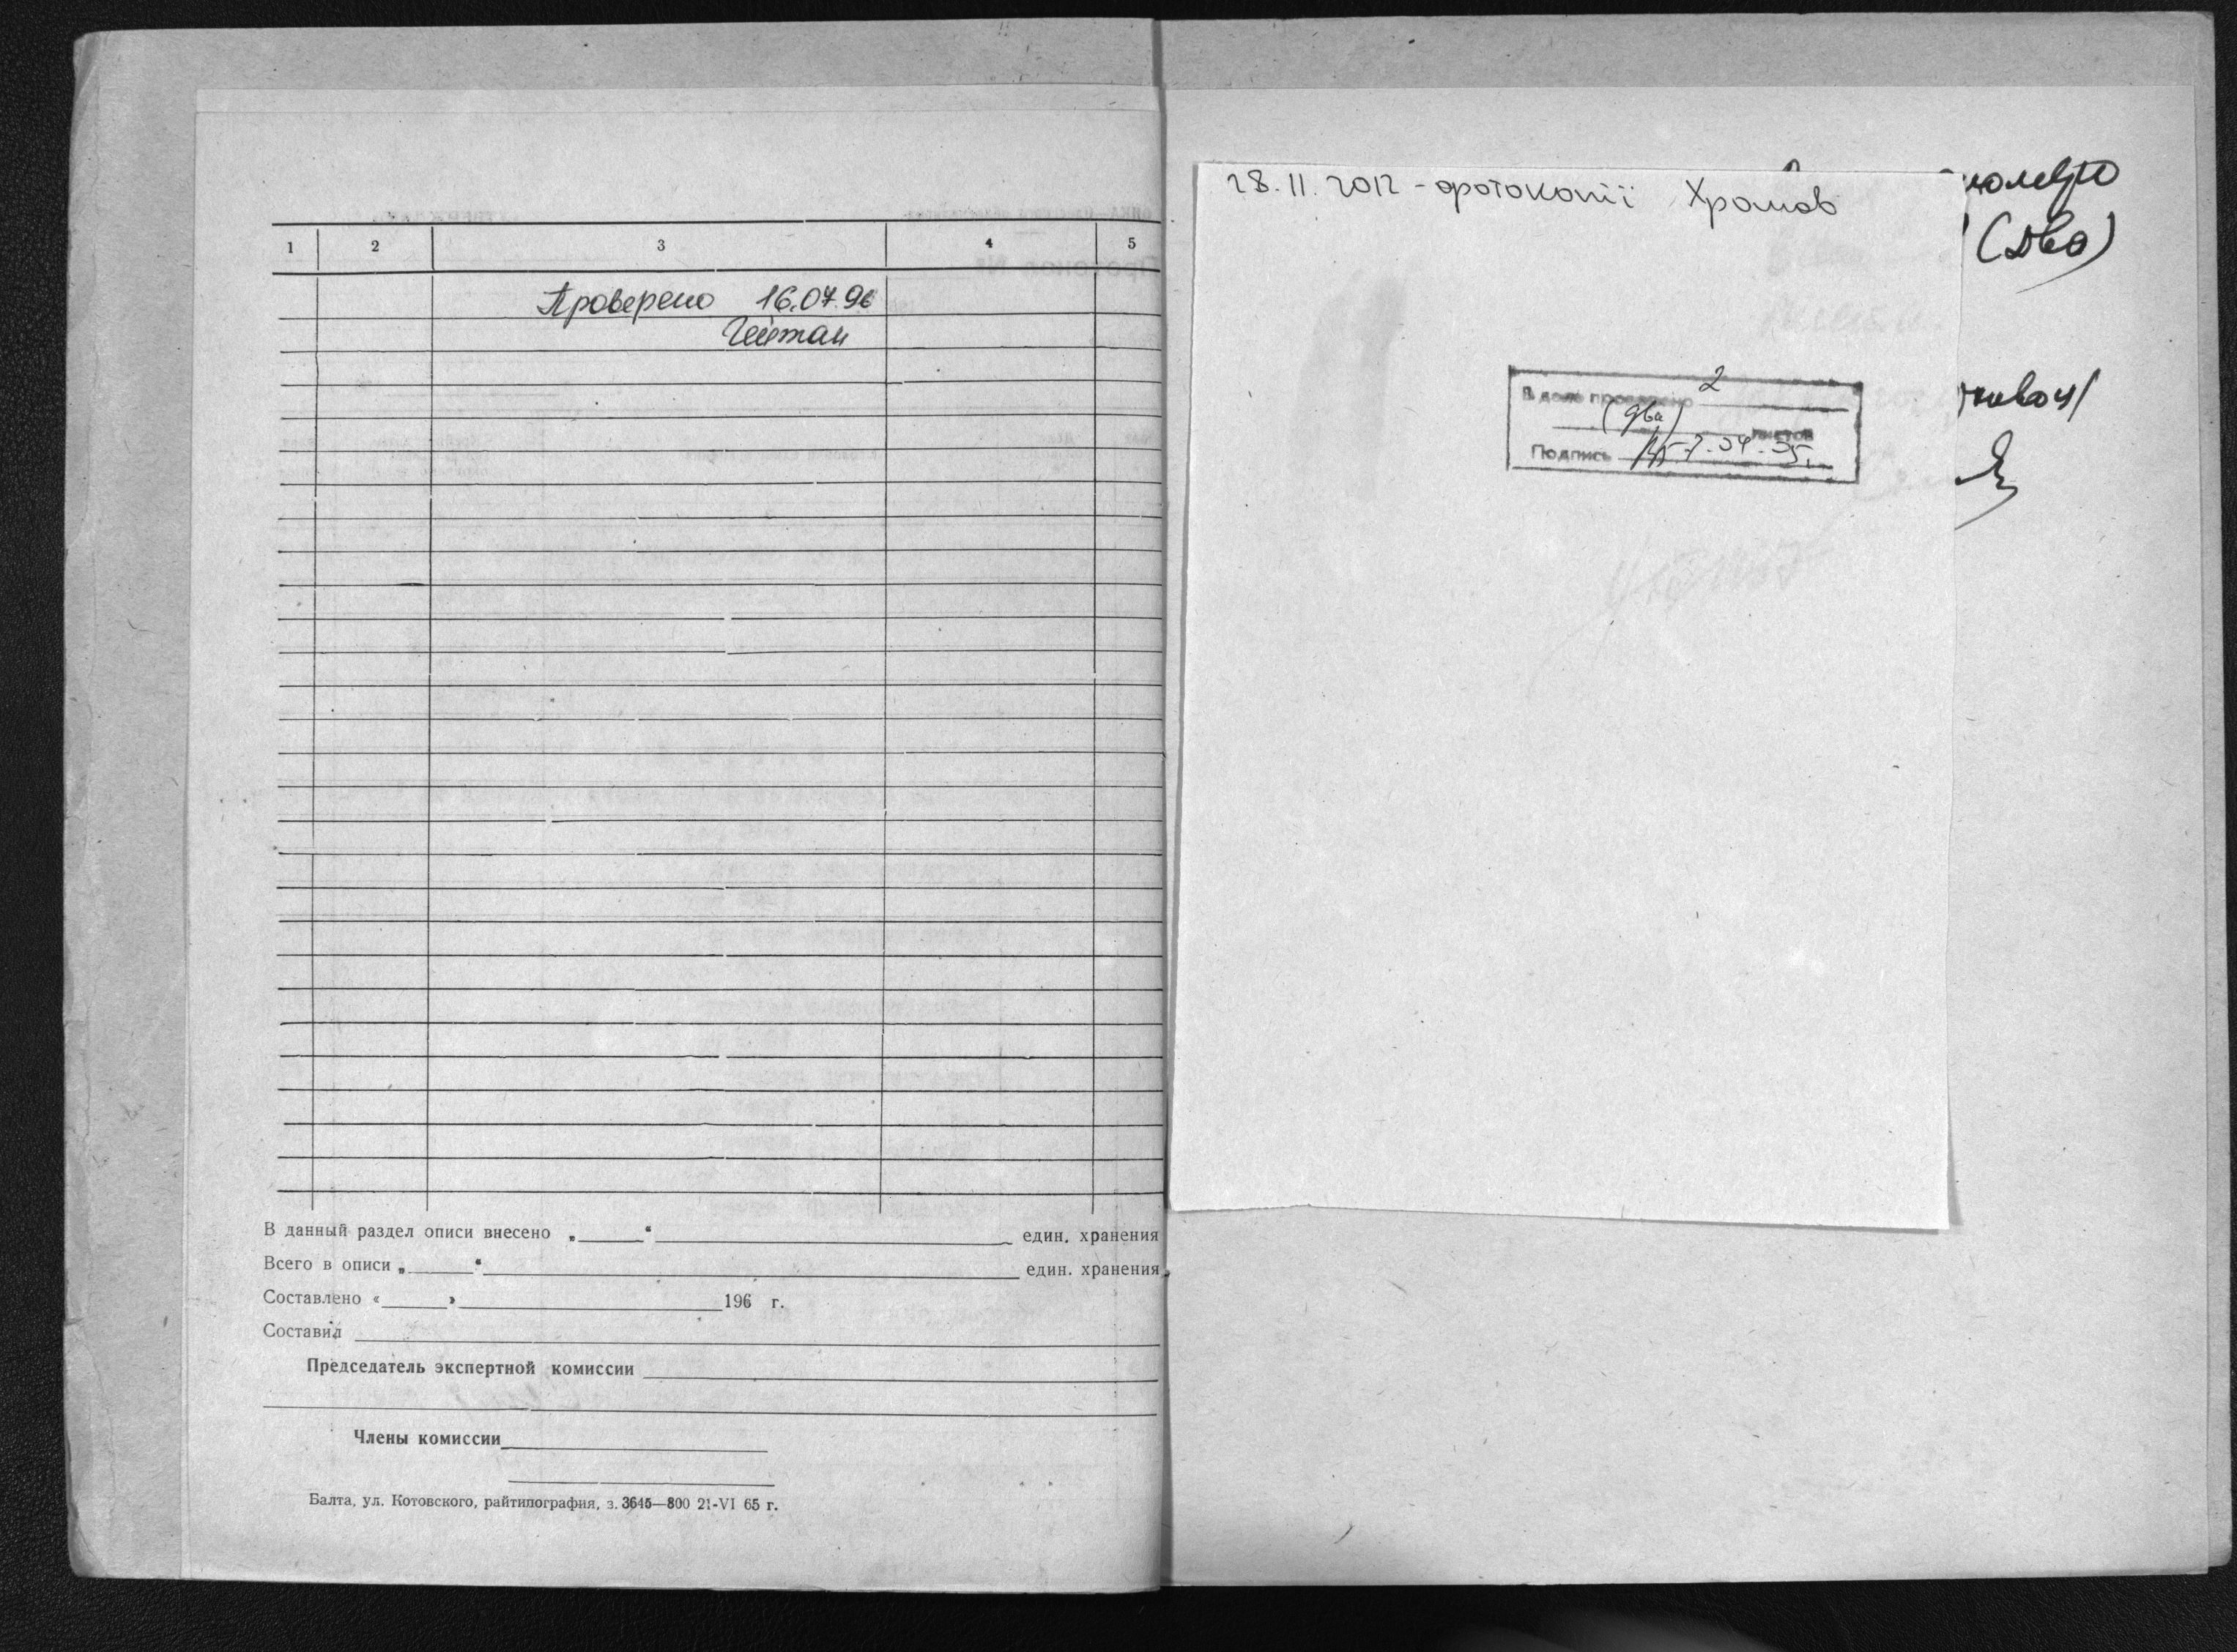 1 2 3 4 5
Проверено 16.07.96
В данный раздел описи внесено „ “ един. хранения
Всего в описи „ “ един. хранения
Составлено « » 196 г.
Составил
Председатель экспертной комиссии
Члены комиссии
Балта, ул. Котовского, райтипография, з. 3645—800 21-VI 65 г.
28.11.2012 - фотокопії Храмов
(два)
В деле проверено 2
(два) листов
Подпись